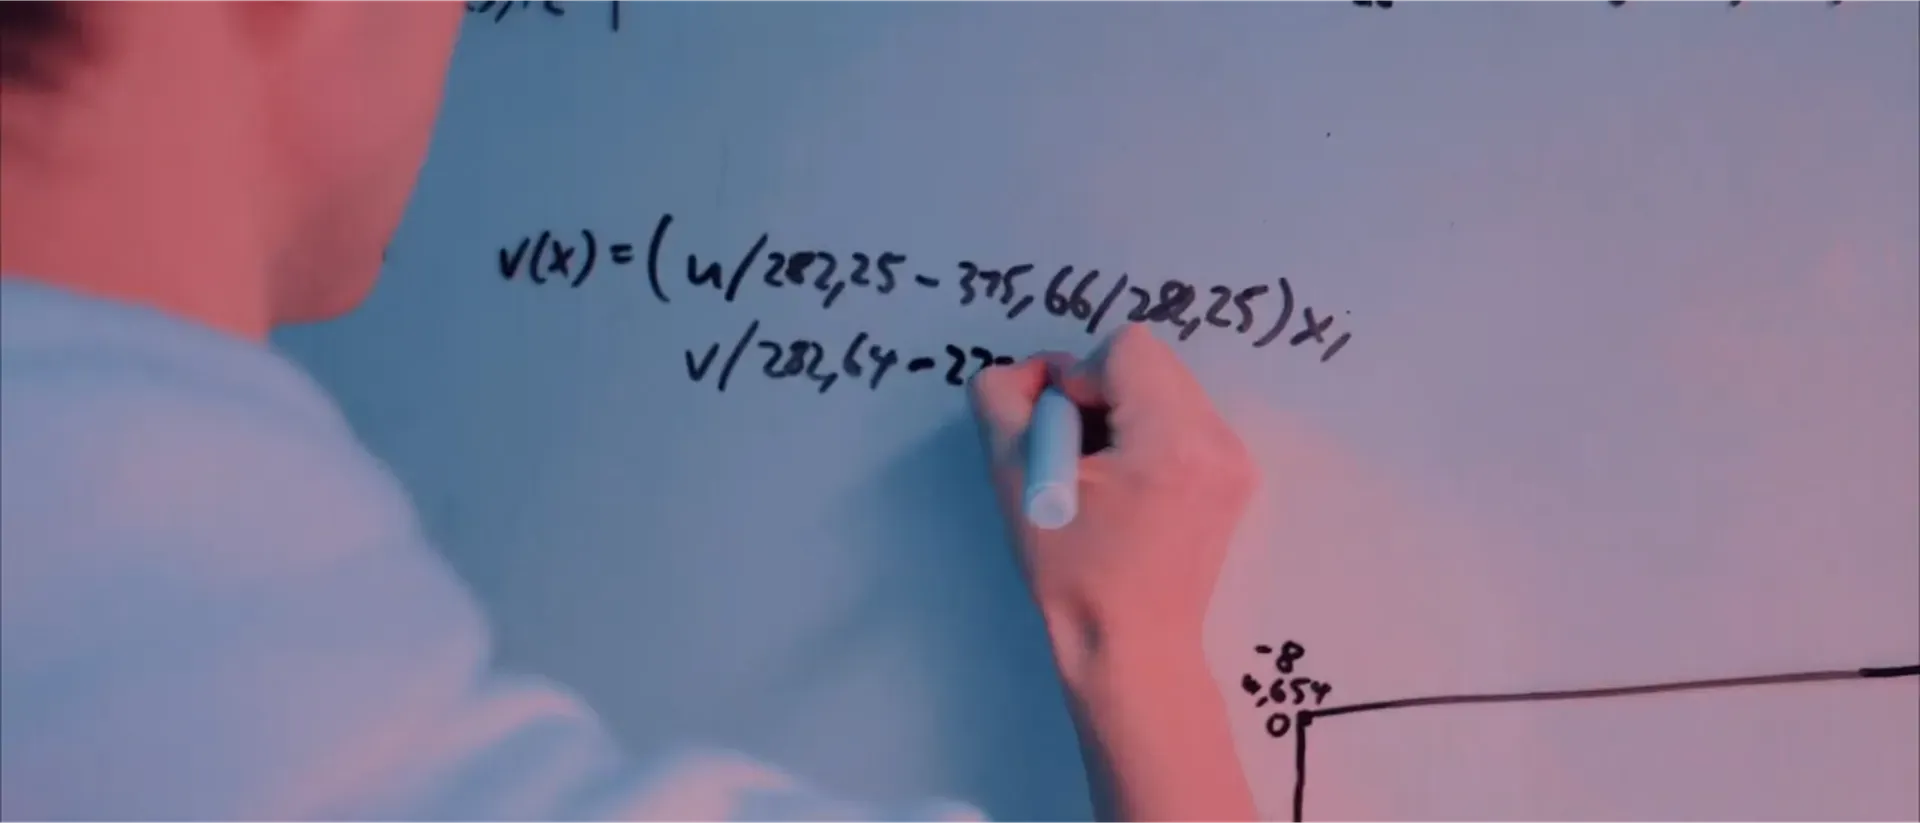 v(x) = ( u/282,25 - 375,66/282,25) x,
v/282,64 - 22
-8
,654
0